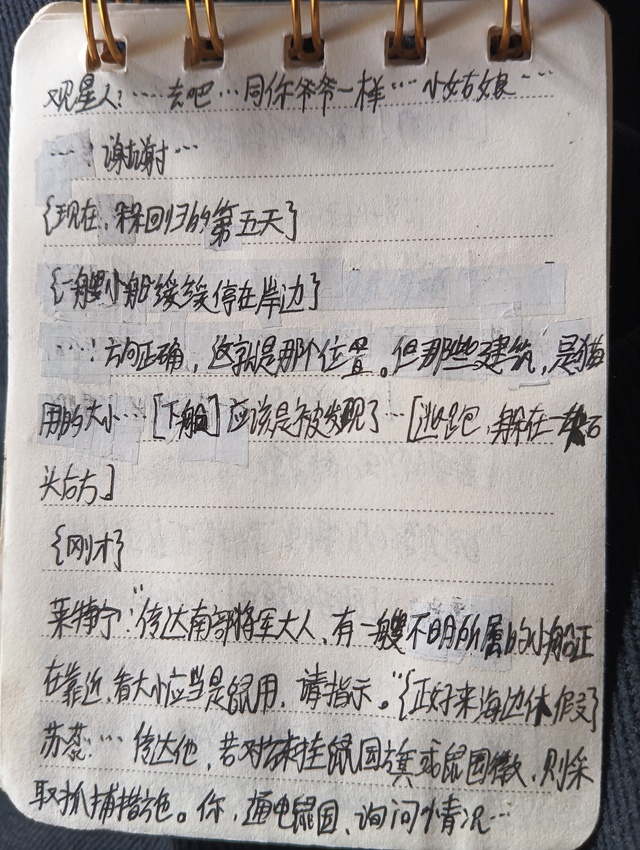 观星人:……去吧…同你爷爷一样……小姑娘……
……!谢谢…
{现在,躲回归的第五天}
{一艘小船缓缓停在岸边}
……!方向正确,这就是那个位置。但那些建筑,是猫
用的大小…[下船]应该是被发现了…[逃跑,躲在一块石
头后方]
{刚才}
莱特宁:“传达南部将军大人,有一艘不明所属的小船正
在靠近,看大小应当是鼠用,请指示。”{正好来海边休假}
苏萘:…传达他,若对方未挂鼠国旗或鼠国徽,则采
取抓捕措施。你,通电鼠国,询问情况…